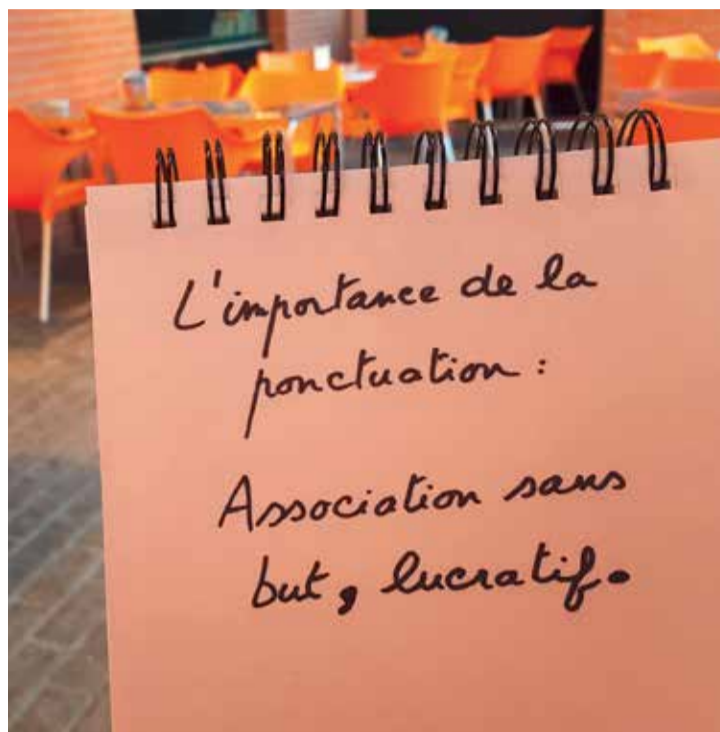 L'importance de la
ponctuation :
Association sans
but, lucratif.